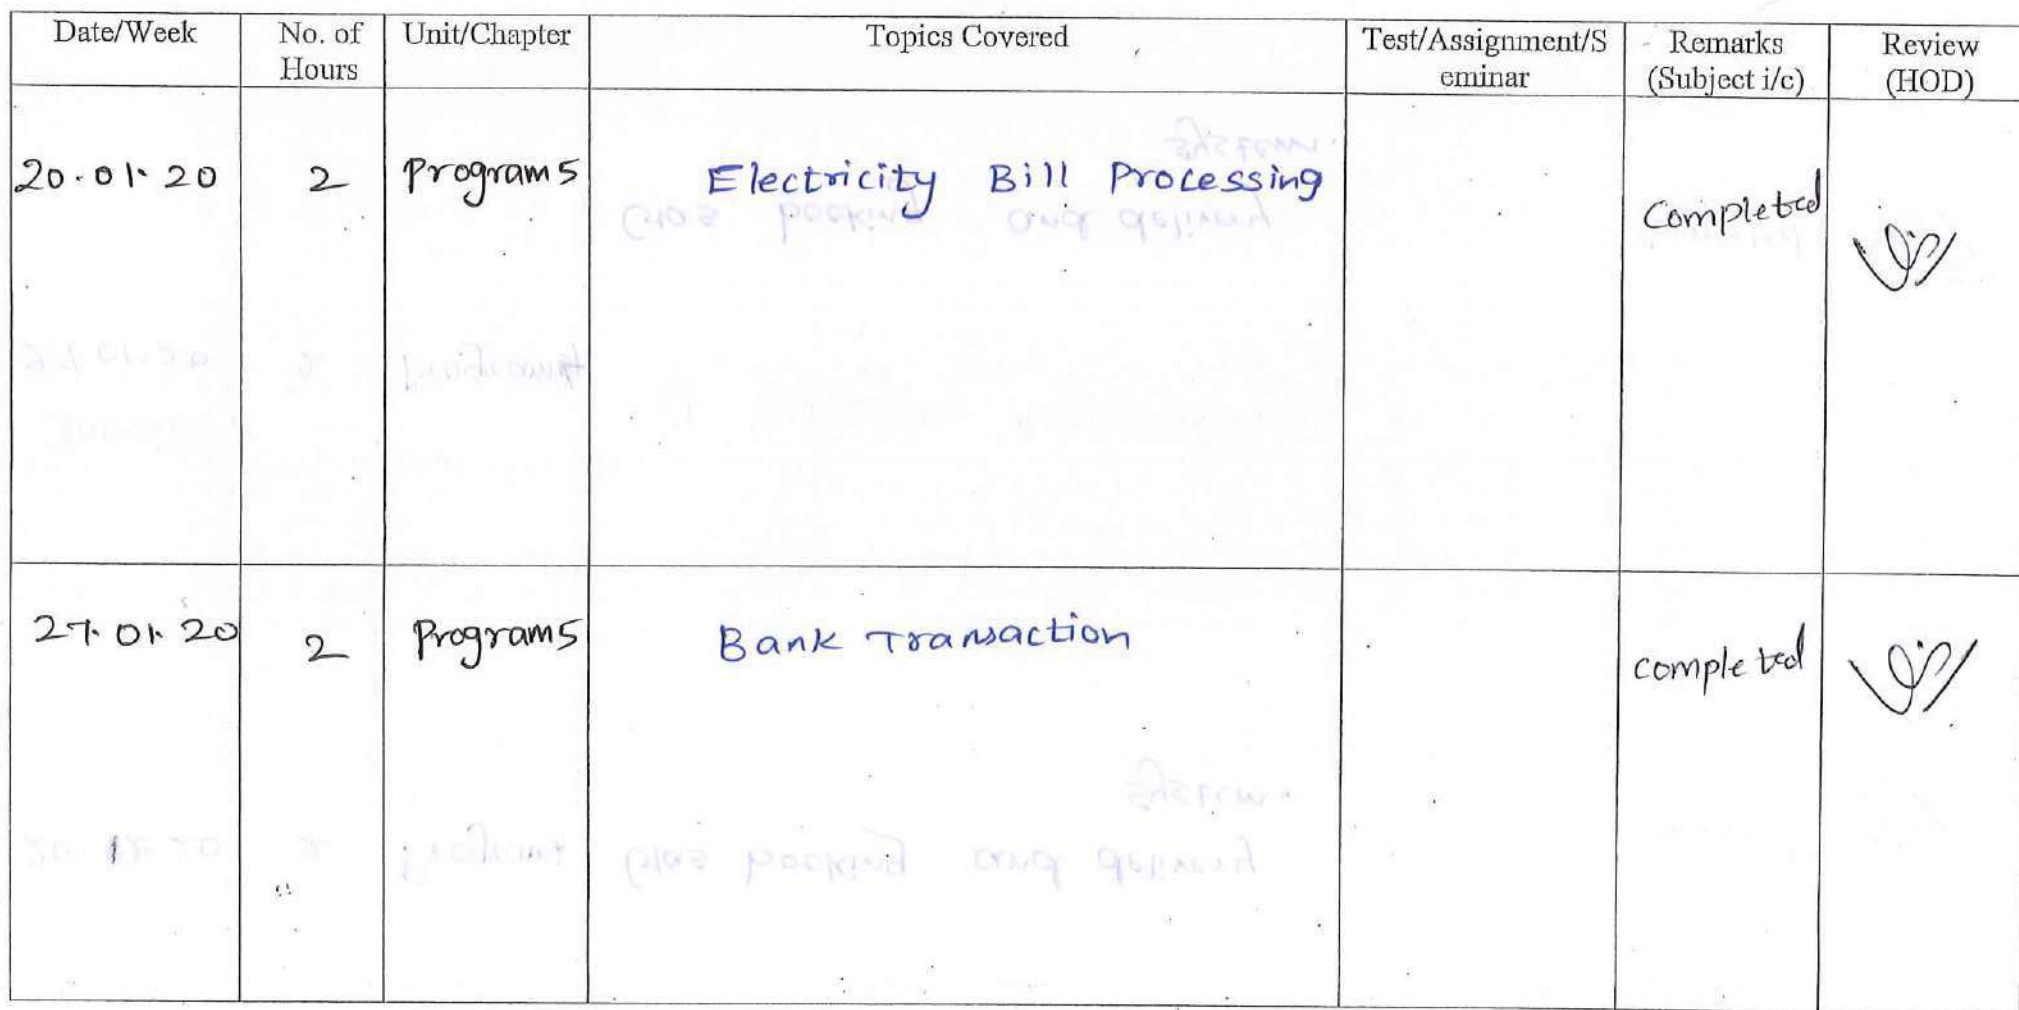 Date/Week No. of Hours Unit/Chapter Topics Covered Test/Assignment/S eminar Remarks (Subject i/c) Review (HOD)
20.01.20 2 Program 5 Electricity Bill Processing Completed
27.01.20 2 Program 5 Bank Transaction completed